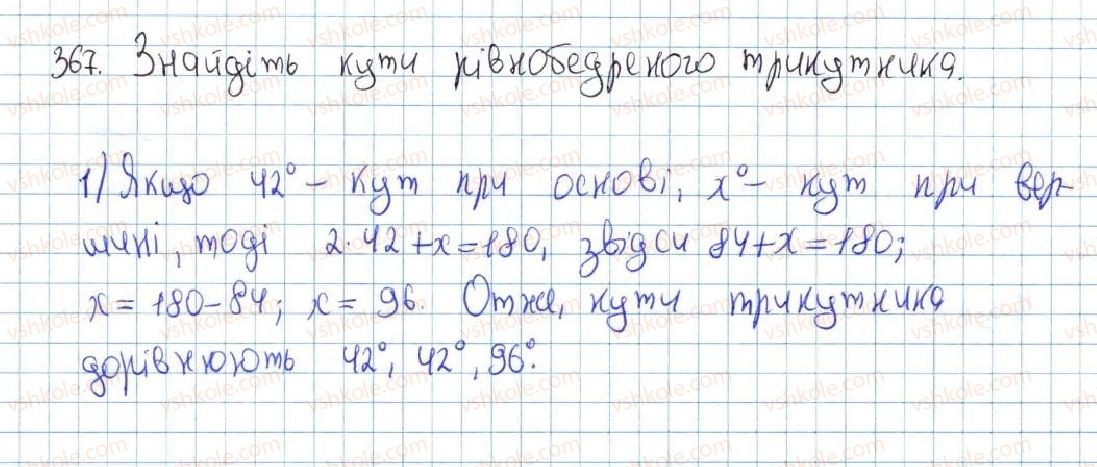 367. Знайдіть кути рівнобедреного трикутника.
1) Якщо 42° – кут при основі, x° – кут при вер-
шині, тоді 2·42+x=180, звідси 84+x=180;
x=180–84; x=96. Отже, кути трикутника
дорівнюють 42°, 42°, 96°.